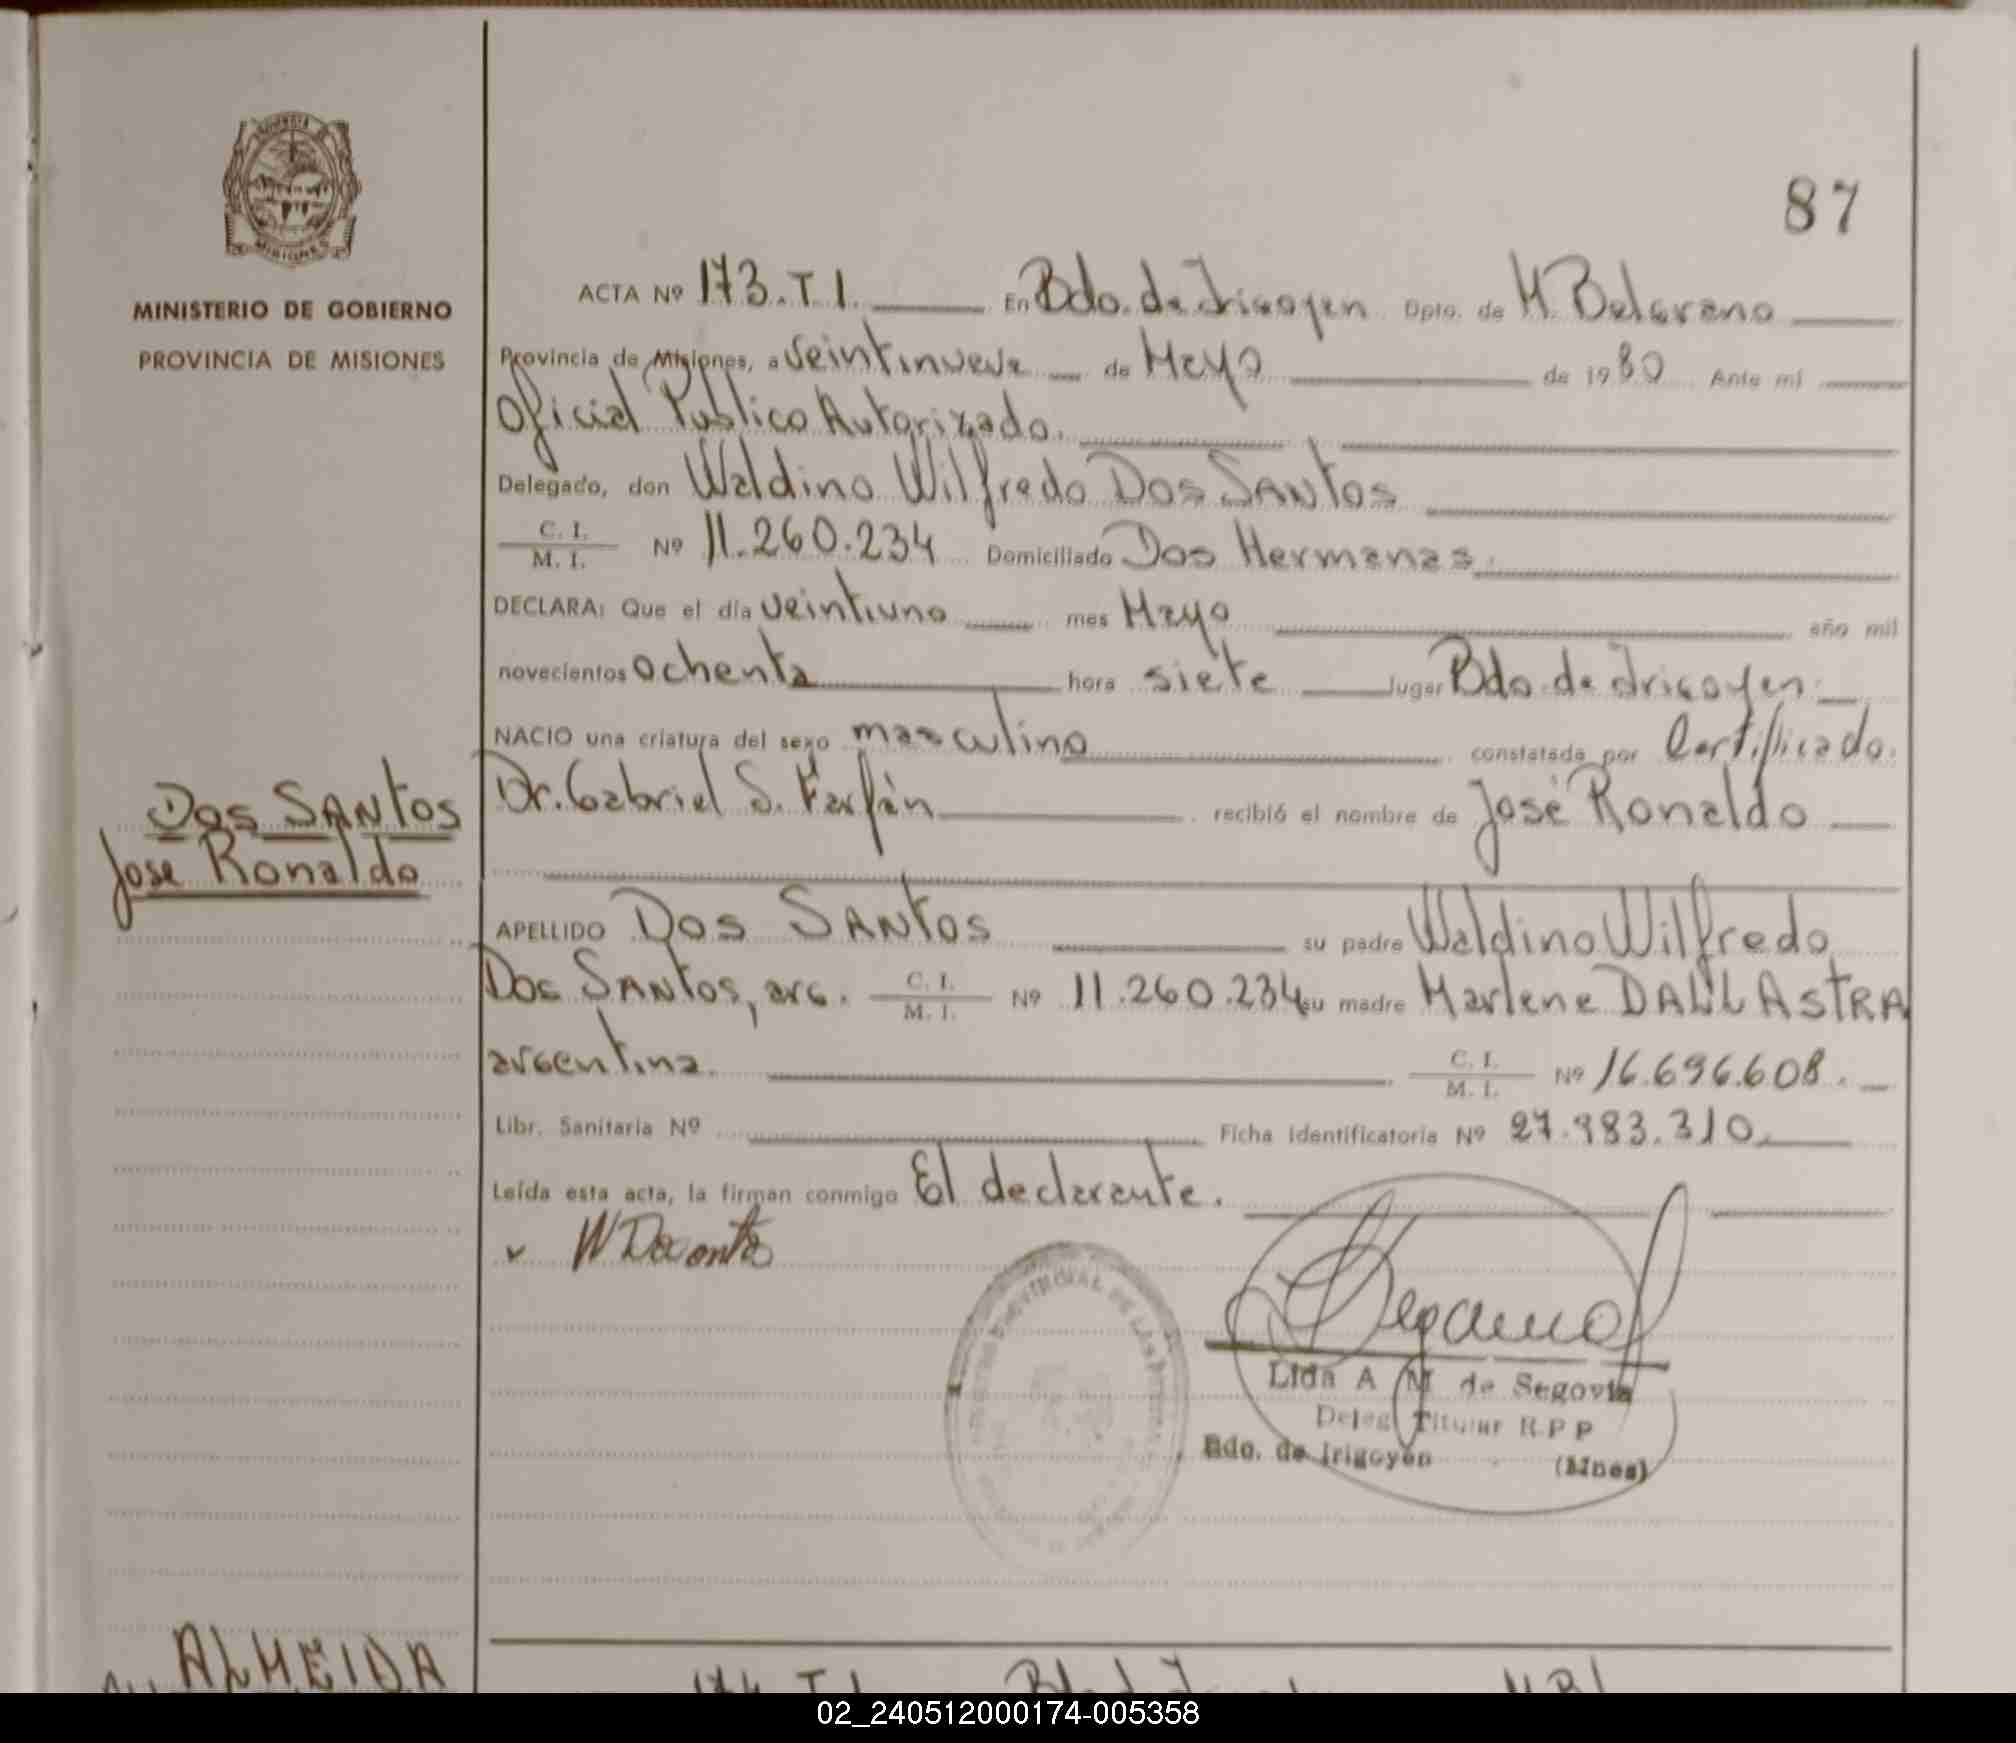 87
MINISTERIO DE GOBIERNO
PROVINCIA DE MISIONES
ACTA Nº 173.T.I. En Bdo. de Irigoyen Dpto. de M. Belgrano
Provincia de Misiones, a veintinueve de Mayo de 1980 Ante mi
Oficial Publico Autorizado.
Delegado, don Waldino Wilfredo Dos SANtos
C. I.
M. I. Nº 11.260.234 Domiciliado Dos Hermanas.
DECLARA: Que el día veintiuno mes Mayo año mil
novecientos ochenta hora siete lugar Bdo. de Irigoyen
NACIO una criatura del sexo masculino constatada por Certificado.
Dr. Gabriel S. Farfán recibió el nombre de José Ronaldo
Dos SANtos
Jose Ronaldo
APELLIDO Dos SANtos su padre Waldino Wilfredo
Dos SANtos, arg. C. I. M. I. Nº 11.260.234 su madre Marlene DALL ASTRA
argentina. C. I. M. I. Nº 16.696.608.
Libr. Sanitaria Nº Ficha Identificatoria Nº 27.983.310
Leída esta acta, la firman conmigo El declarante.
Lida A M de Segovia
Deleg Titular R.P.P
Bdo. de Irigoyen (Mnes)
ALMEIDA
174 T I
02_240512000174-005358